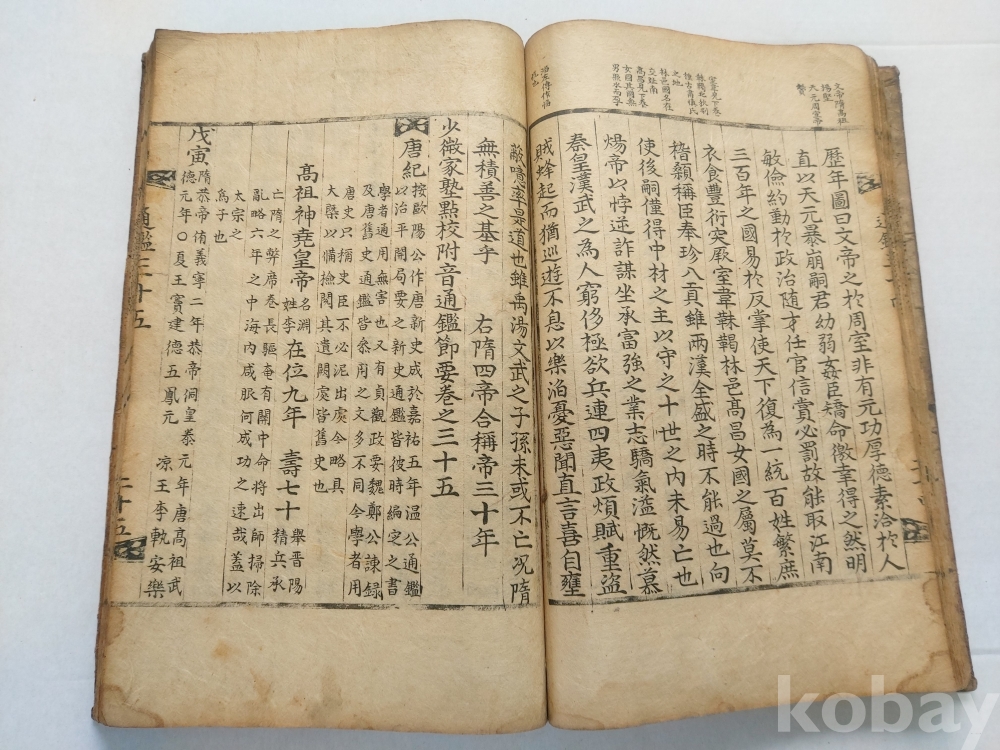 文帝隋高祖
楊堅
天元周宣帝
贇
歷年圖曰文帝之於周室非有元功厚德素洽於人
直以天元暴崩嗣君幼弱姦臣矯命徼幸得之然明
敏儉約勤於政治随才任官信賞必罰故能取江南
三百年之國易於反掌使天下復為一統百姓繁庶
衣食豐衍突厥室韋靺鞨林邑高昌女國之屬莫不
稽顙稱臣奉珍入貢雖兩漢全盛之時不能過也向
使後嗣僅得中材之主以守之十世之內未易亡也
煬帝以悖逆詐謀坐承富強之業志驕氣溢慨然慕
秦皇漢武之為人窮侈極欲兵連四夷政煩賦重盜
賊蜂起而猶巡遊不息以樂泊憂惡聞直言喜自壅
蔽嗜率是道也雖禹湯文武之子孫未或不亡况隋
無積善之基乎　右隋四帝合稱帝三十年
少微家塾點校附音通鑑節要卷之三十五
唐紀
按歐陽公作唐新史成於嘉祐五年温公通鑑
以治平開局要之新史通鑑皆彼時編定之書
學者通用無害也又有貞觀政要魏鄭公諫録
及唐舊史通鑑皆叅用之文多不同今學者用
唐史只稱史臣不必泥出處今略具
大槩以備撿閱其遺闕處皆舊史也
高祖神堯皇帝
名淵
姓李
在位九年　壽七十
舉晋陽
精兵承
亡隋之弊席卷長驅奄有關中命將出師掃除
亂略六年之中海內咸服何成功之速哉蓋以
太宗之
爲子也
戊寅
隋恭帝侑義寧二年恭帝侗皇泰元年唐高祖武
德元年〇夏王竇建德五鳳元　凉王李軌安樂
通鑑三十五
三十五
kobay